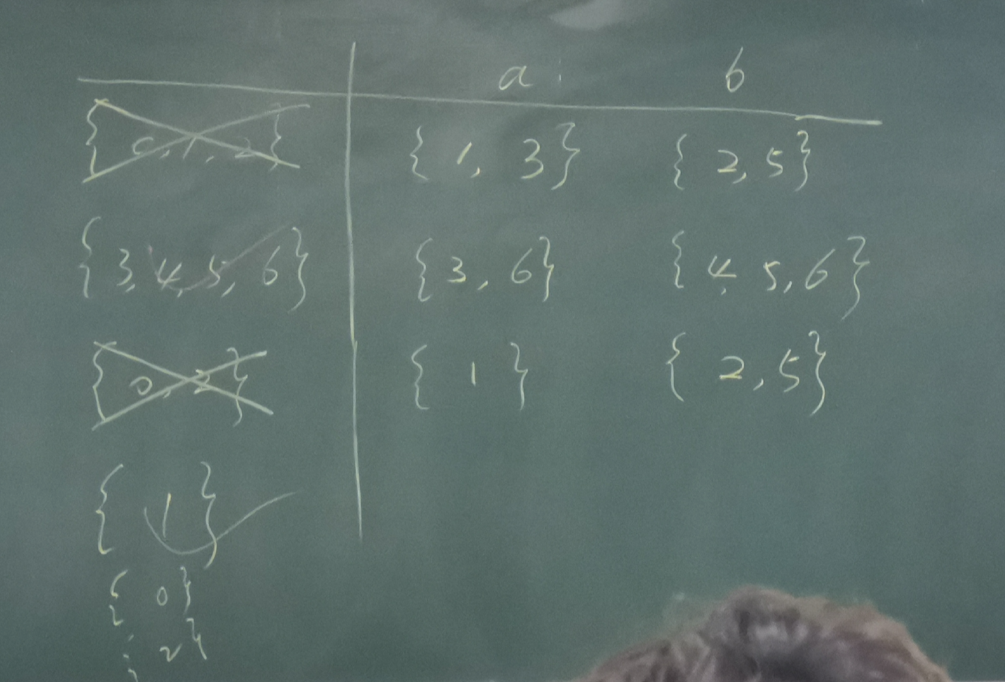 a b
{0,1,2} {1,3} {2,5}
{3,4,5,6} {3,6} {4,5,6}
{0,2} {1} {2,5}
{1}
{0}
{2}